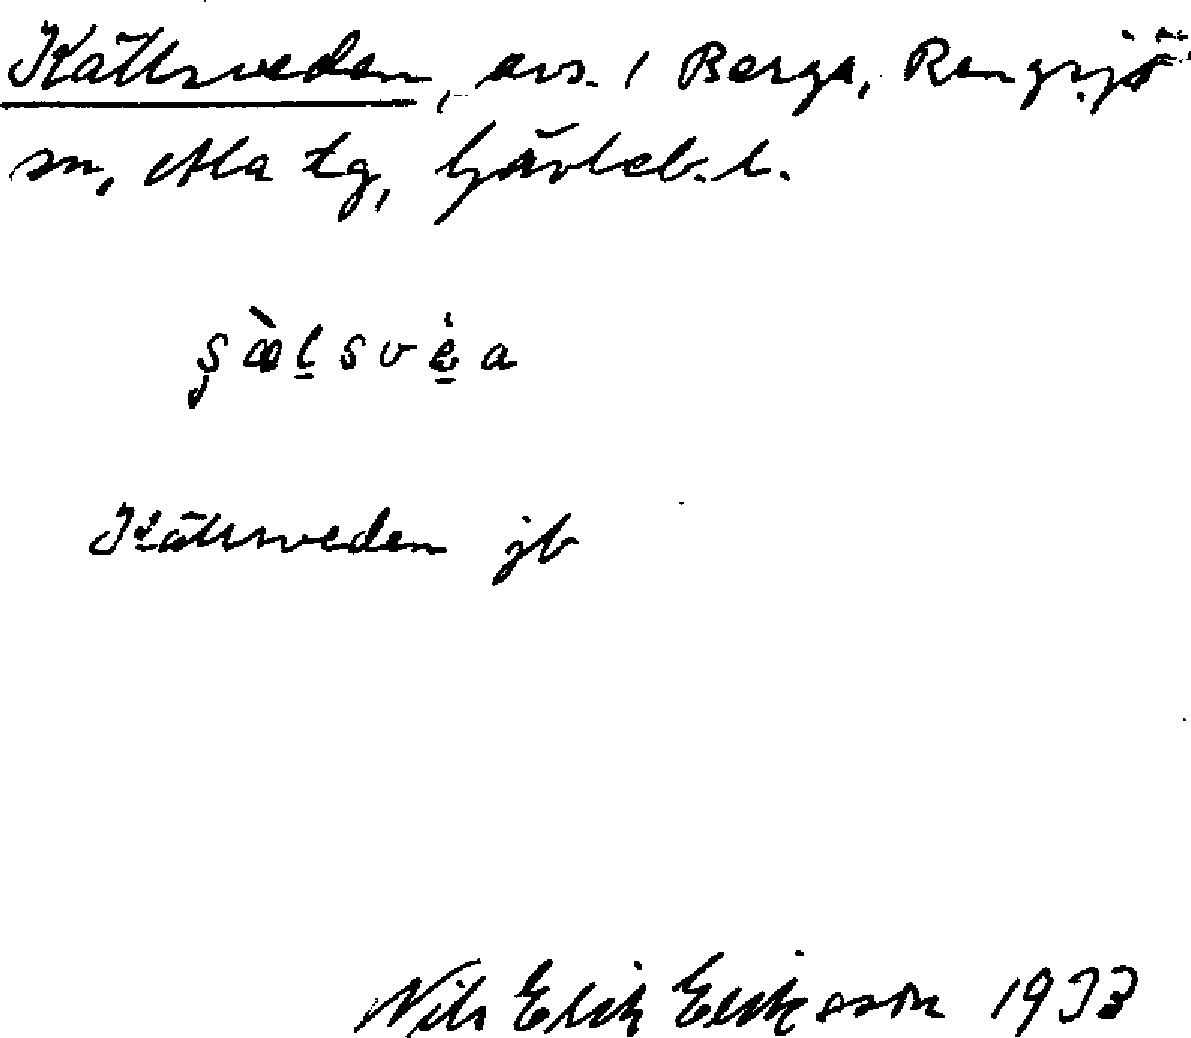 Källsweden, avs. i Berga, Rengsjö
sn, Ala tg, Gävleb. l.
s̡æ̀l̠svė̠a
Källsweden jb
Nils Erik Eriksson 1933